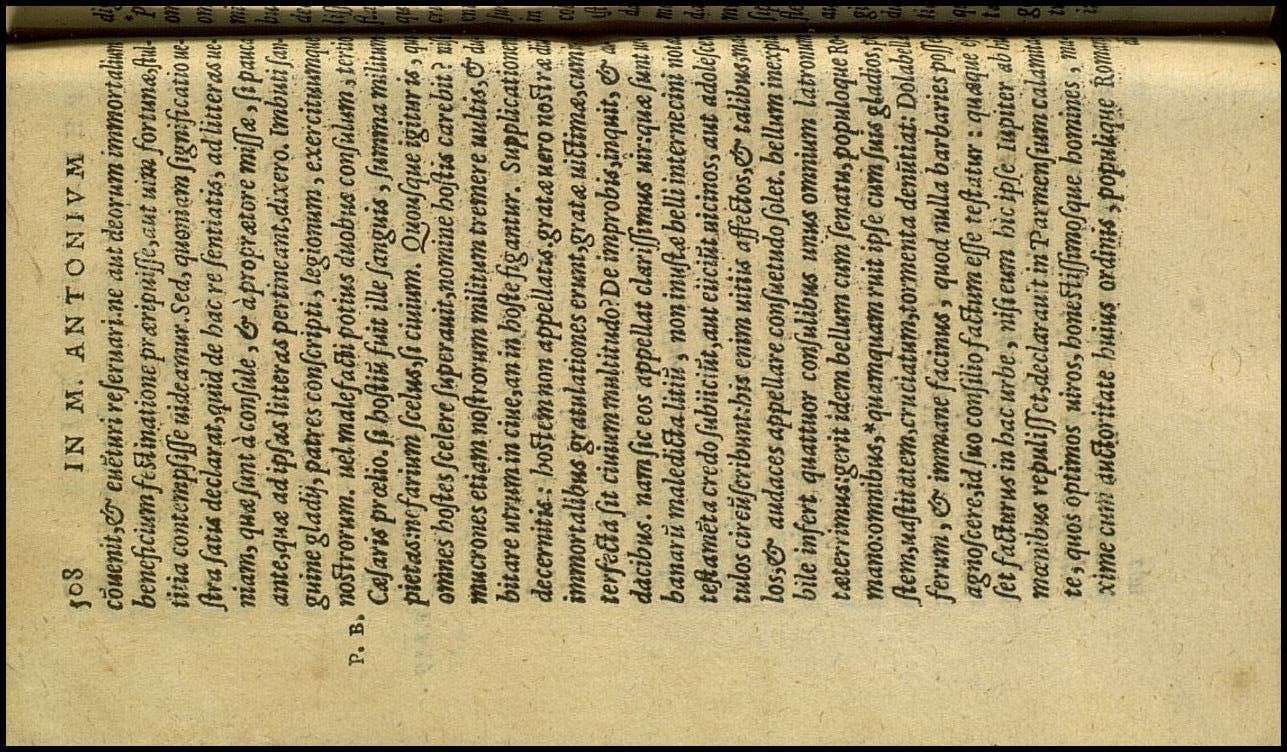 508 IN M. ANTONIVM
cōuenit, & euēturi reseruari. ne aut deorum immortalium
beneficium festinatione præripuisse, aut uim fortunæ, stul-
titia contempsisse uideamur. Sed, quoniam significatio ue-
stra satis declarat, quid de hac re sentiatis, ad litteras ue-
niam, quæ sunt à consule, & à proprætore missæ, si pauca
ante, quæ ad ipsas litteras pertineant, dixero. Imbuti san-
guine gladij, patres conscripti, legionum, exercituumque
nostrorum. uel madefacti potius duobus consulum, tertio
P. B.
Cæsaris prœlio. si hostiū fuit ille sanguis, summa militum
pietas: nefarium scelus, si ciuium. Quousque igitur is, qui
omnes hostes scelere superauit, nomine hostis carebit? nisi
mucrones etiam nostrorum militum tremere uultis, & du-
bitare utrum in ciue, an in hoste figantur. Supplicationem
decernitis: hostem non appellatis. gratæ uero nostræ dis
immortalibus gratulationes erunt, gratæ uictimæ, cum in-
terfecta sit ciuium multitudo? De improbis, inquit, & au-
dacibus. nam sic eos appellat clarissimus uir: quæ sunt ur-
banarū maledicta litiū, non inustæ belli internecini notæ
testamēta credo subiiciūt, aut eiiciūt uicinos, aut adolescen
tulos circūscribunt: his enim uitiis affectos, & talibus, ma-
los, & audaces appellare consuetudo solet. bellum inexpia
bile infert quattuor consulibus unus omnium latronum,
tæterrimus: gerit idem bellum cum senatu, populoque Ro-
mano: omnibus, *quamquam ruit ipse cum suis gladios, pe
stem, uastitatem, cruciatum, tormenta denūtiat: Dolabellæ
ferum, & immane facinus, quod nulla barbaries posset
agnoscere, id suo consilio factum esse testatur: quæque es-
set facturus in hac urbe, nisi eum hic ipse Iupiter ab his
mœnibus repulisset, declarauit in Parmensium calamita-
te, quos optimos uiros, honestissimosque homines, ma-
xime cum auctoritate huius ordinis, populique Romani